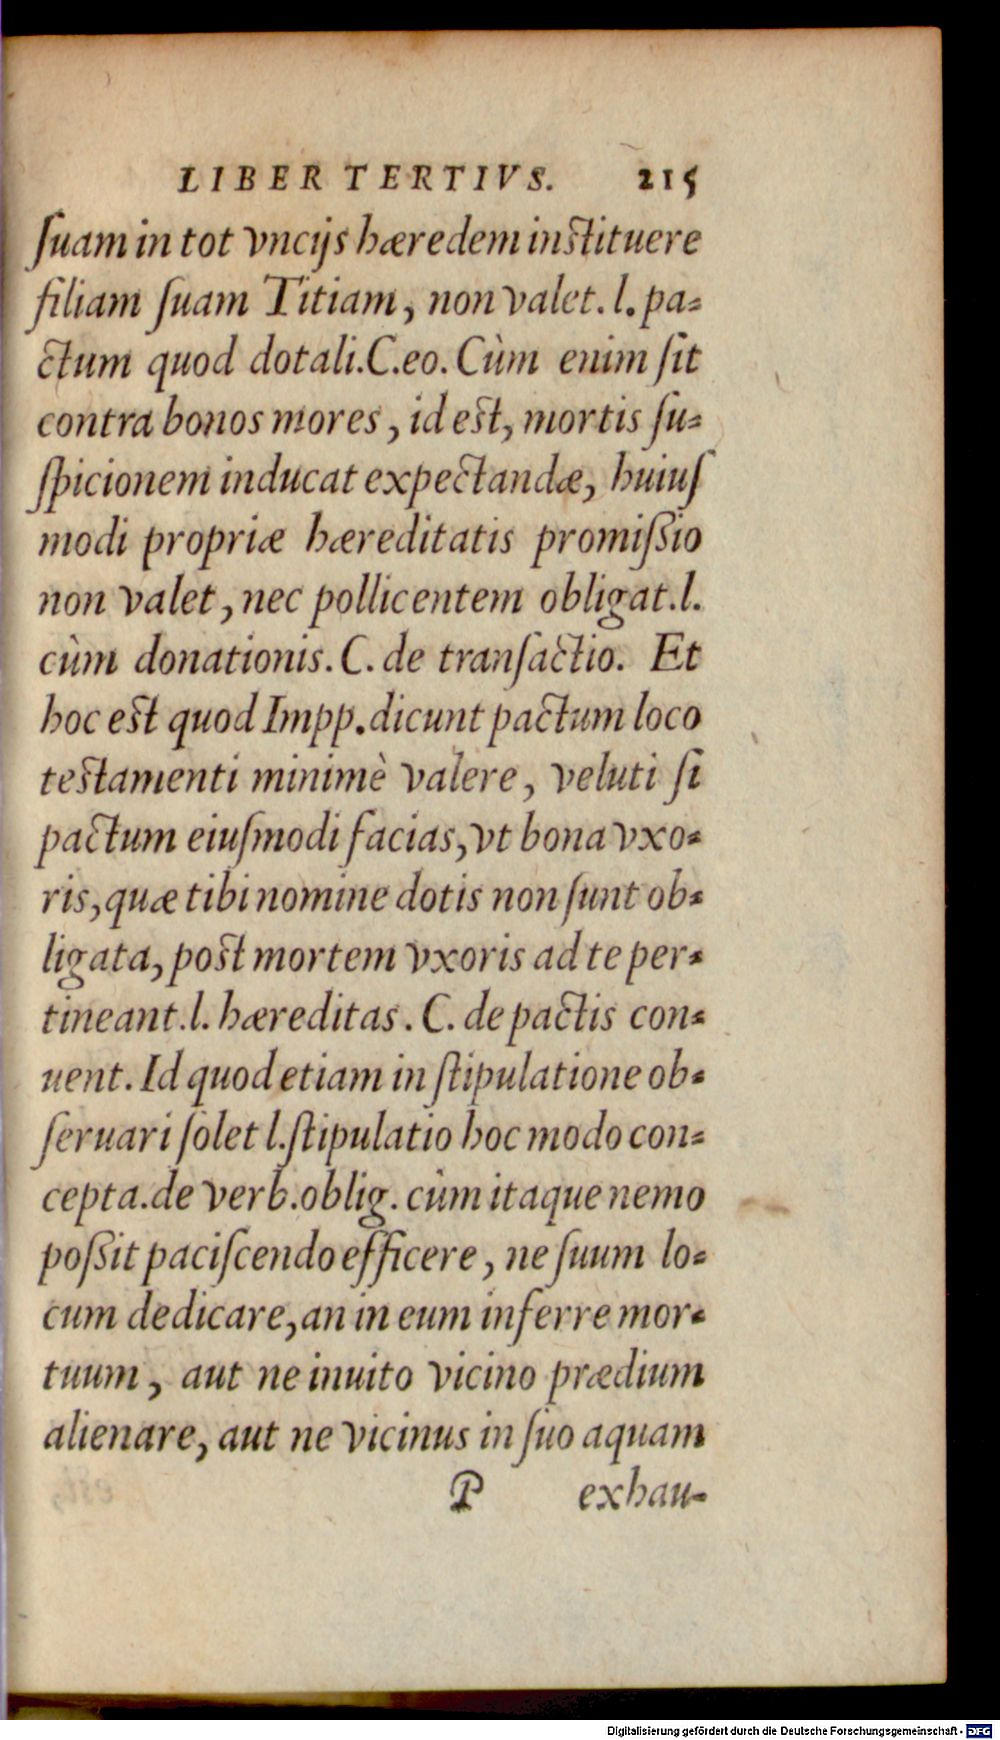 LIBER TERTIVS. 215
ſuam in tot vncijs hæredem inſtituere
filiam ſuam Titiam, non valet. l. pa-
ctum quod dotali. C. eo. Cùm enim ſit
contra bonos mores, id eſt, mortis ſu-
ſpicionem inducat expectandæ, huiuſ
modi propriæ hæreditatis promiſsio
non valet, nec pollicentem obligat. l.
cùm donationis. C. de tranſactio. Et
hoc eſt quod Impp. dicunt pactum loco
teſtamenti minimè valere, veluti ſi
pactum eiuſmodi facias, vt bona vxo-
ris, quæ tibi nomine dotis non ſunt ob-
ligata, poſt mortem vxoris ad te per-
tineant. l. hæreditas. C. de pactis con-
uent. Id quod etiam in ſtipulatione ob-
ſeruari ſolet l. ſtipulatio hoc modo con-
cepta. de verb. oblig. cùm itaque nemo
poſsit paciſcendo efficere, ne ſuum lo-
cum dedicare, an in eum inferre mor-
tuum, aut ne inuito vicino prædium
alienare, aut ne vicinus in ſuo aquam
P exhau-
Digitalisierung gefördert durch die Deutsche Forschungsgemeinschaft - DFG